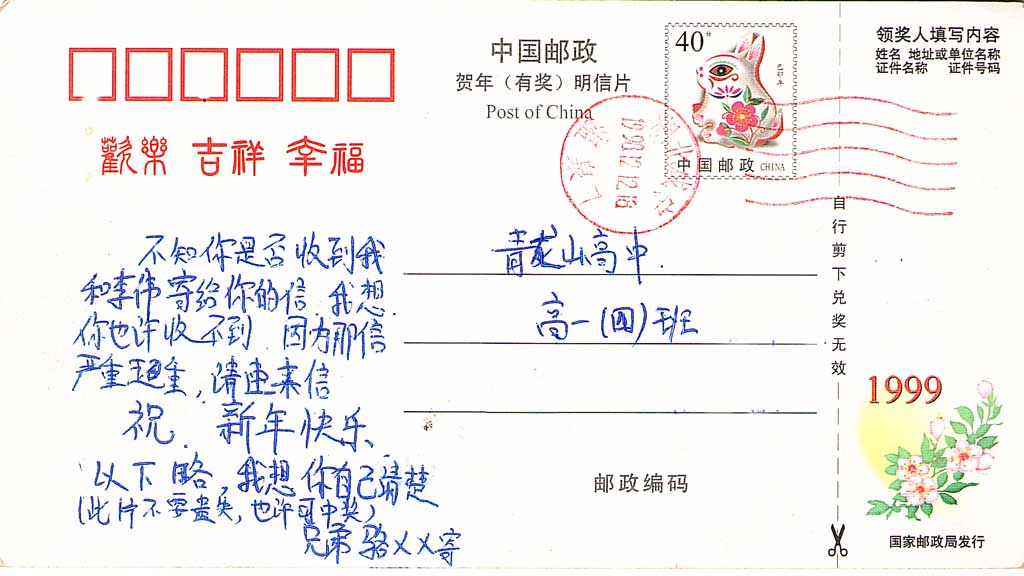 中国邮政
贺年（有奖）明信片
Post of China
40分
己卯年
中国邮政 CHINA
1998.12.16
领奖人填写内容
姓名 地址或单位名称
证件名称 证件号码
歡樂 吉祥 幸福
不知你是否收到我
和李伟寄给你的信．我想．
你也许收不到 因为那信
严重超重，请速来信
祝．新年快乐
以下略，我想你自己清楚
（此片不要遗失，也许可中奖）
兄弟 骆××寄
青龙山高中．
高一（四）班
邮政编码
自行剪下兑奖无效
1999
国家邮政局发行